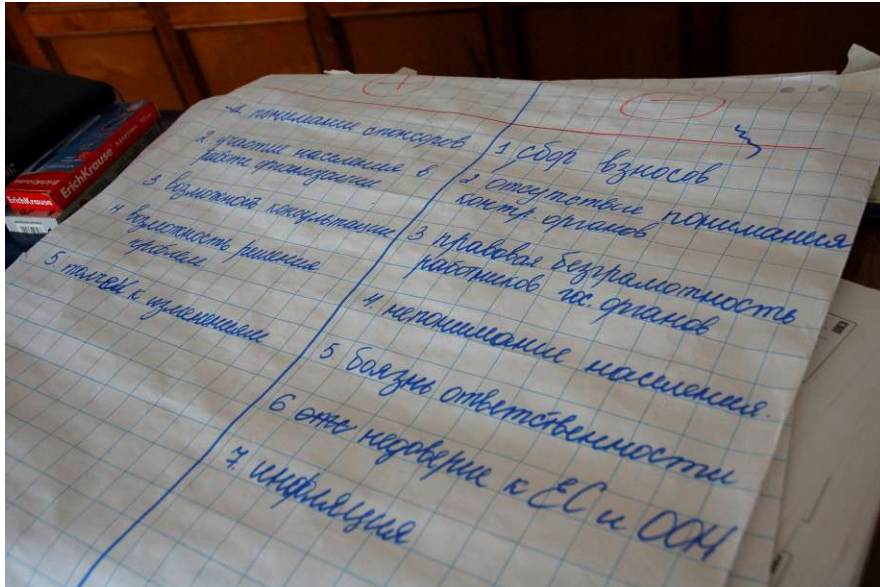 +
1. понимание спонсоров
2 участие населения в
работе организации
3 возможной консультации
4 возможность решения
проблем
5 толчок к изменениям
−
1 сбор взносов
2 отсутствие понимания
контр. органов
3 правовая безграмотность
работников гос. органов
4. непонимание населения.
5. боязнь ответственности
6 недоверие к ЕС и ООН
7. инфляция
ErichKrause
ErichKrause